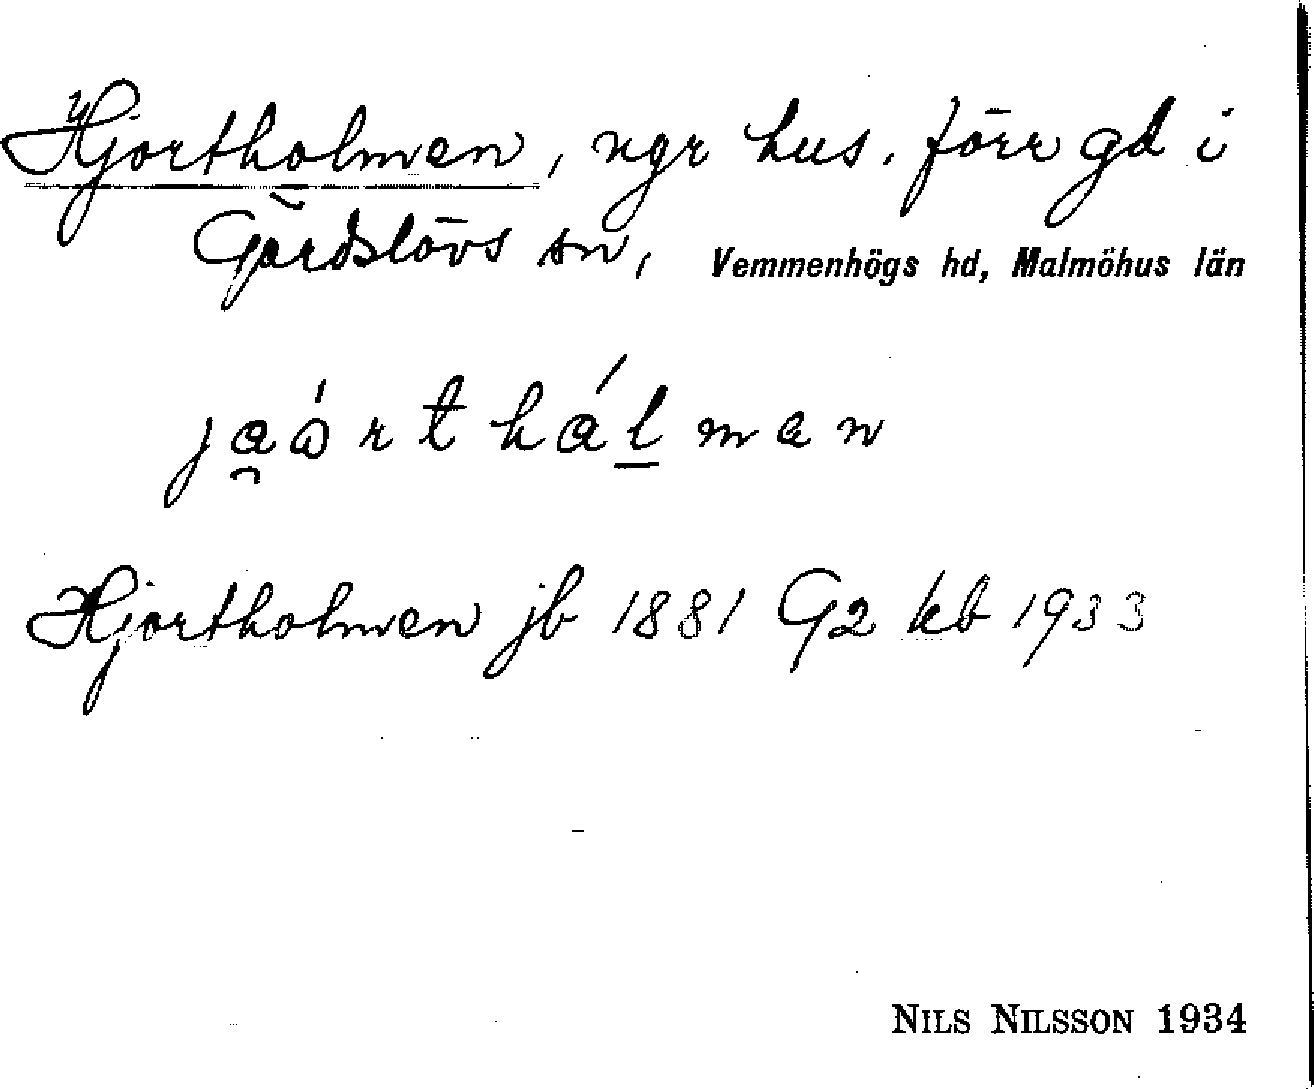 Hjortholmen, ngr hus. förr gd i
Gärdslövs sn, Vemmenhögs hd, Malmöhus län
Hjortholmen jb 1881 G2 kb 1933
NILS NILSSON 1934